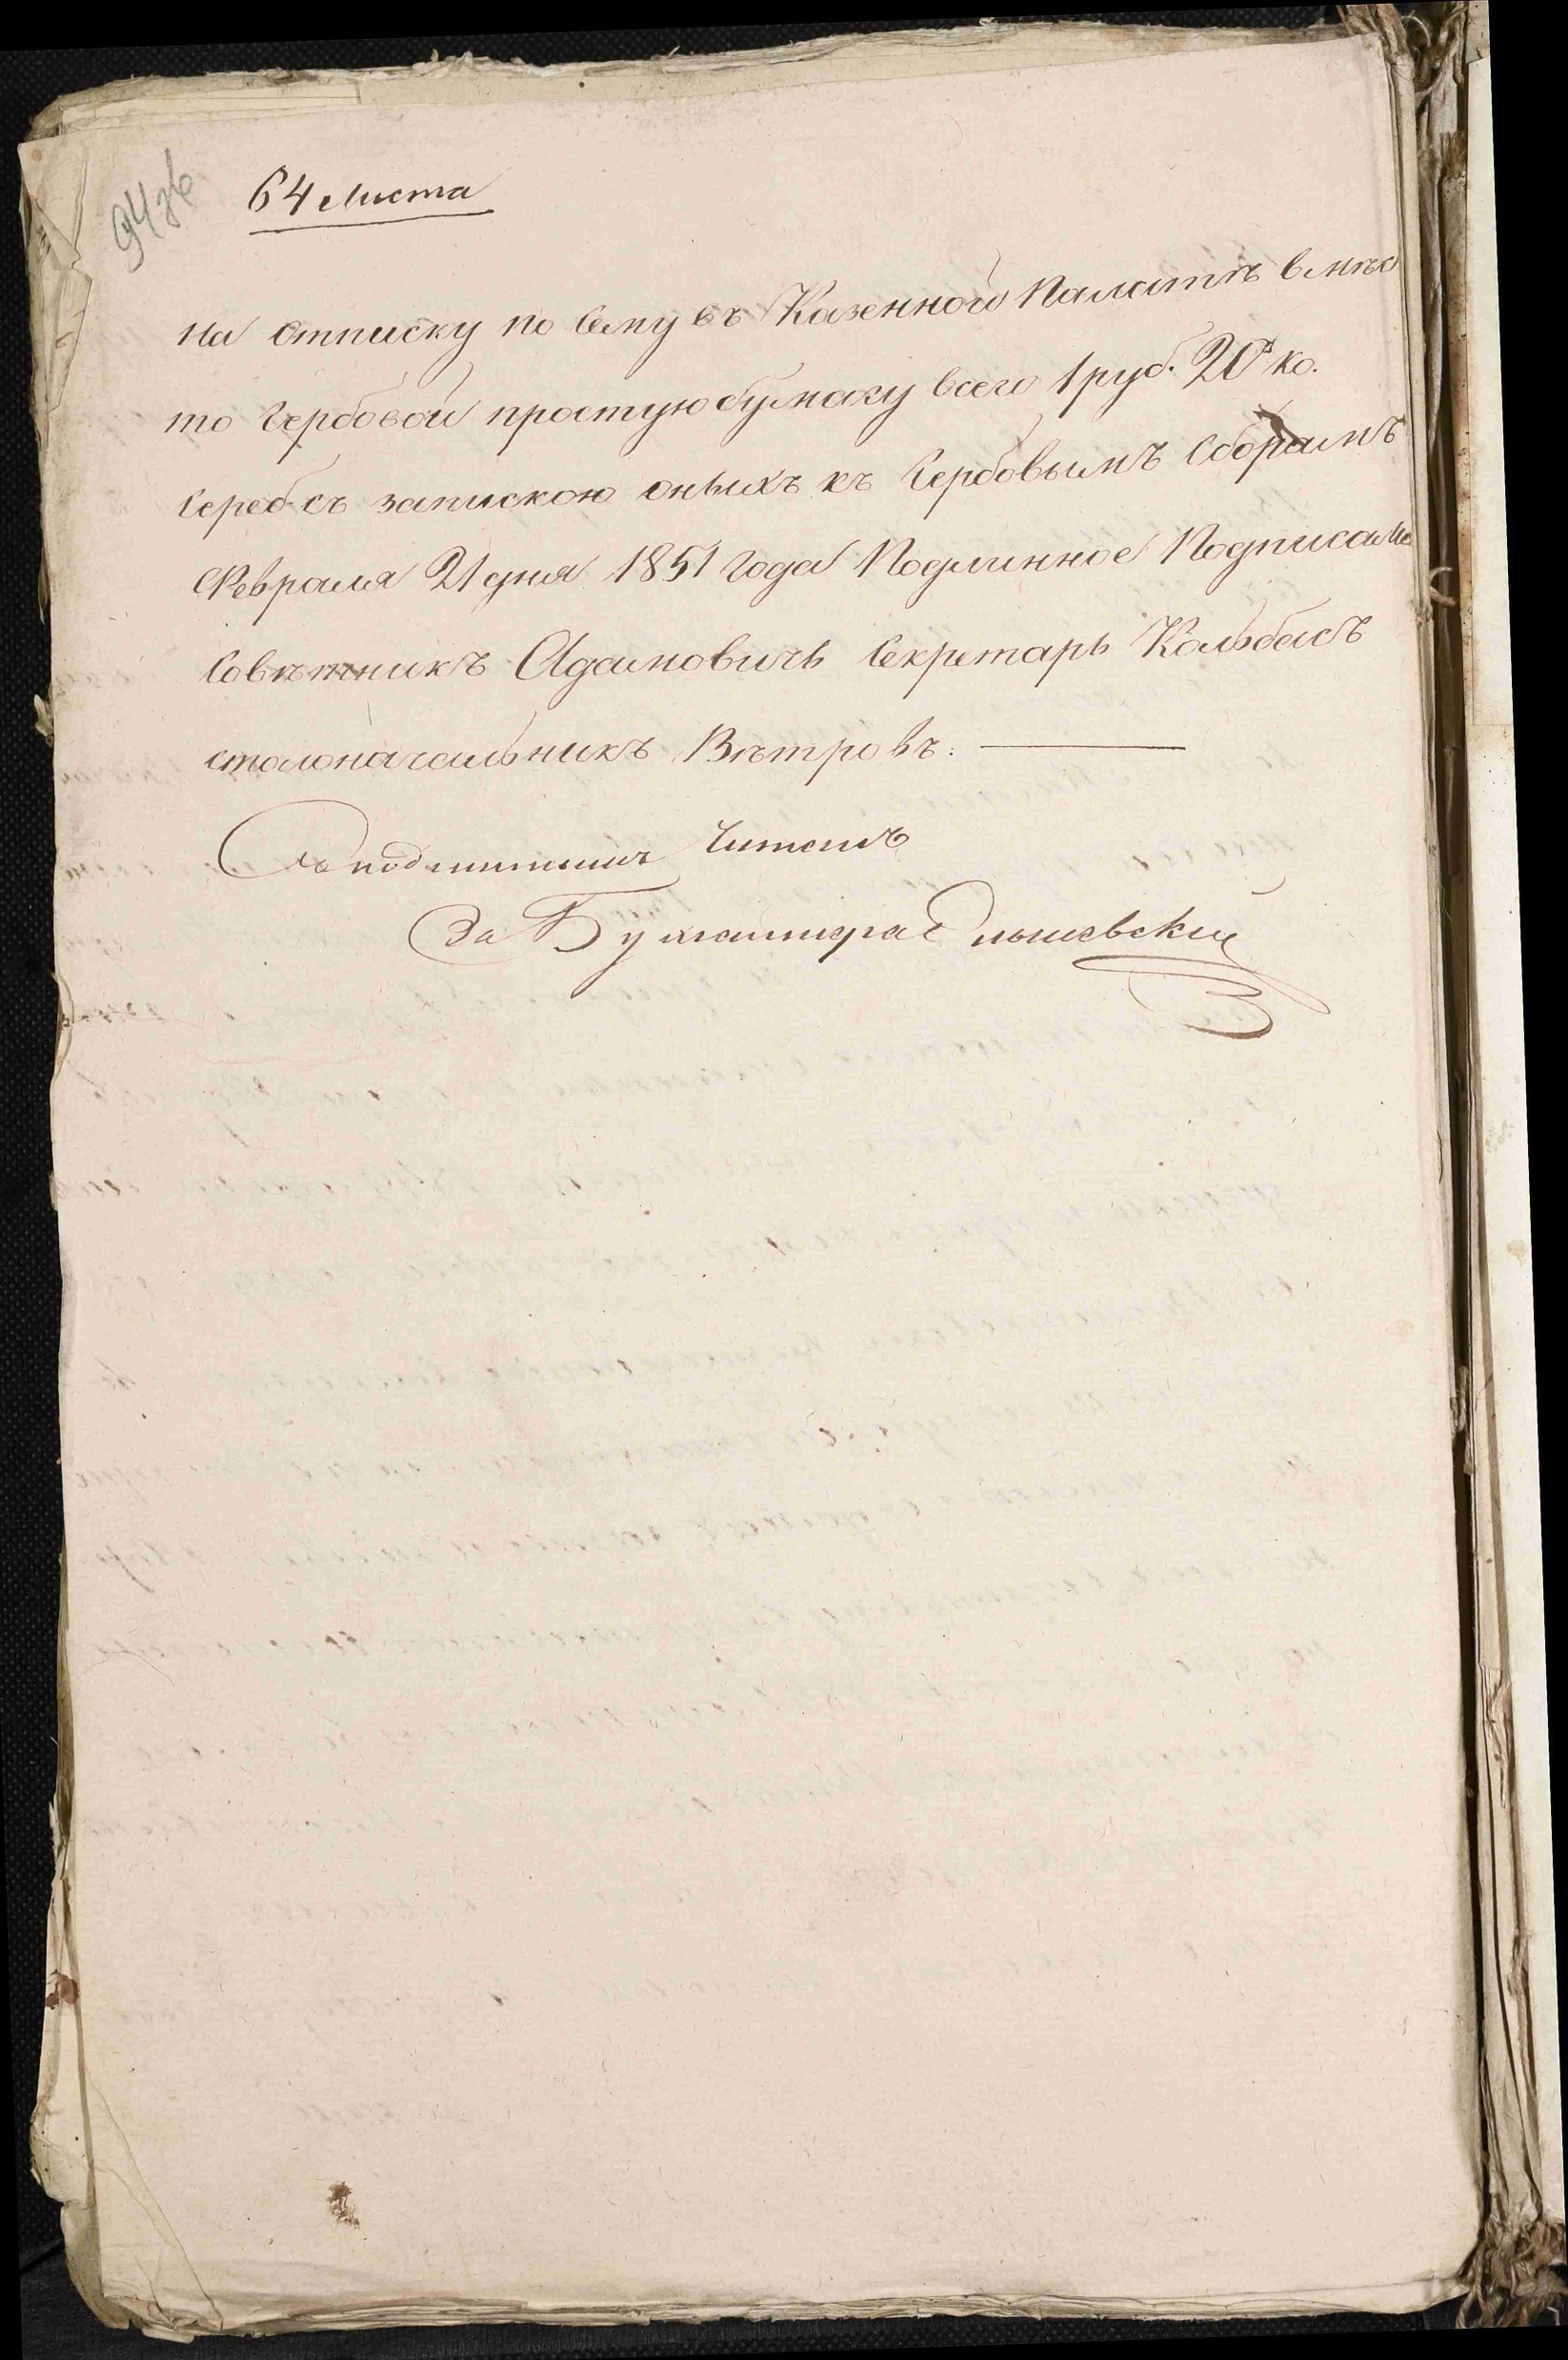 64 листа
на отписку по сему въ Казенной Палатѣ вмѣс
то гербовой простую бумагу всего 1 руб. 20 ко.
сереб. съ запискою оныхъ къ гербовымъ сборамъ
Февраля 21 дня 1851 года Подлинное Подписали
Совѣтникъ Адамовичъ Секретарь Кольбасъ
столоначальникъ Вѣтровъ.
Съ подлиннымъ читалъ
За Бухгалтера